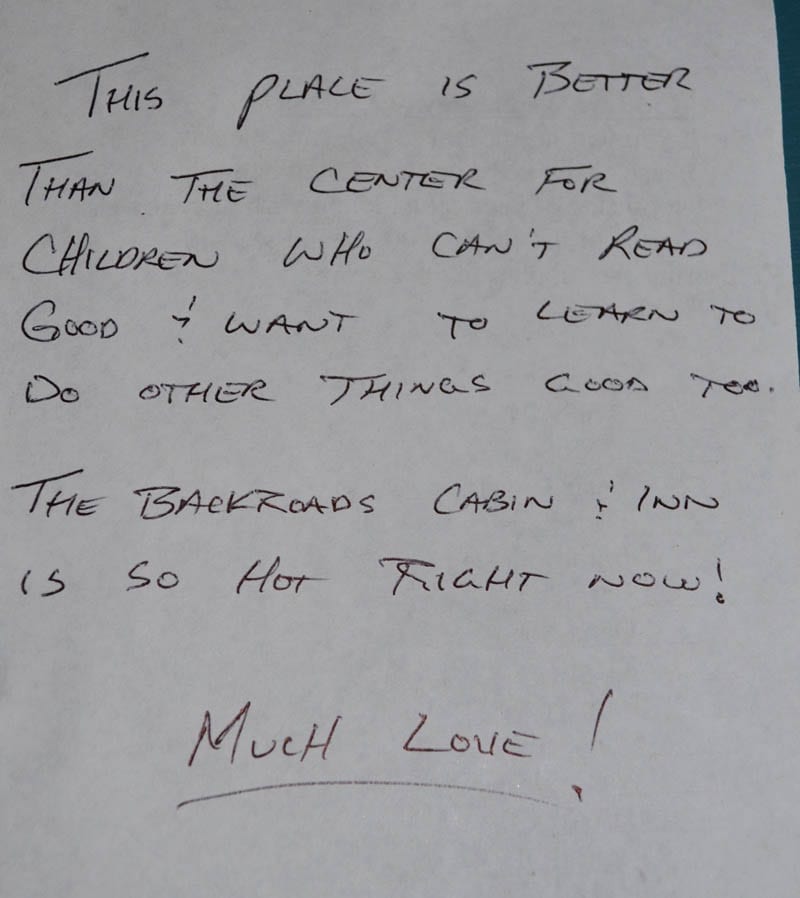 THIS PLACE IS BETTER
THAN THE CENTER FOR
CHILDREN WHO CAN'T READ
GOOD & WANT TO LEARN TO
DO OTHER THINGS GOOD TOO.
THE BACKROADS CABIN & INN
IS SO HOT RIGHT NOW!
MUCH LOVE!